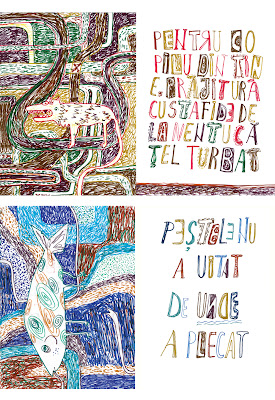 PENTRU CO
PILU DIN TON
E. PRAJITURA
CU STAFIDE DE
LA VENTUCĂ
TEL TURBAT
PEȘTELE NU
A UITAT
DE UNDE
A PLECAT